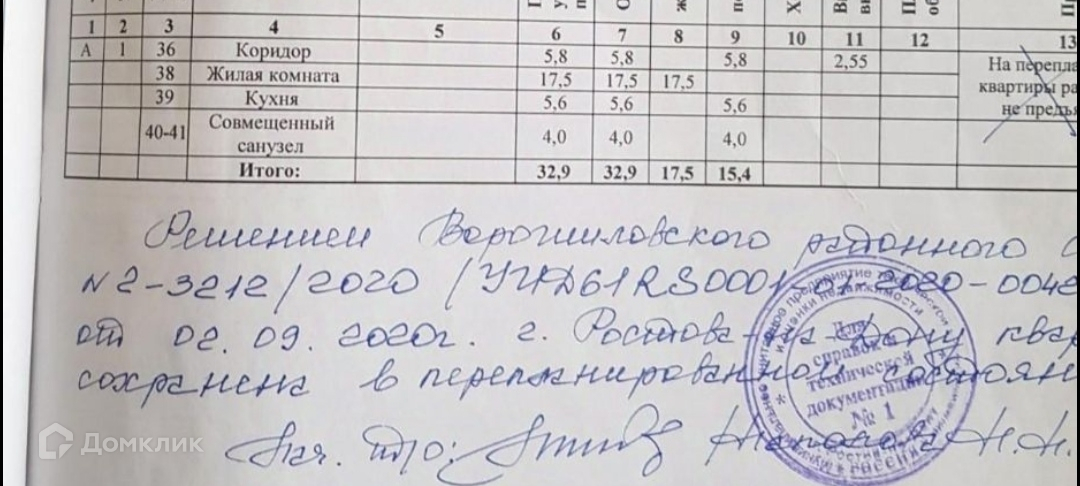 1 2 3 4 5 6 7 8 9 10 11 12 13
А 1 36 Коридор 5,8 5,8 5,8 2,55 На перепла
38 Жилая комната 17,5 17,5 17,5 квартиры ра
39 Кухня 5,6 5,6 5,6 не предъя
40-41 Совмещенный санузел 4,0 4,0 4,0
Итого: 32,9 32,9 17,5 15,4
Решением Ворошиловского районного с
№2-3212/2020 /УИД61RS0001-01-2020-0042
от 02.09.2020г. г. Ростова-на-Дону квар
сохранена в перепланированном состоян
Нач. ПТО:
Н.Н.
Для
справок и
технической
документации
№ 1
РОССИЯ
Домклик